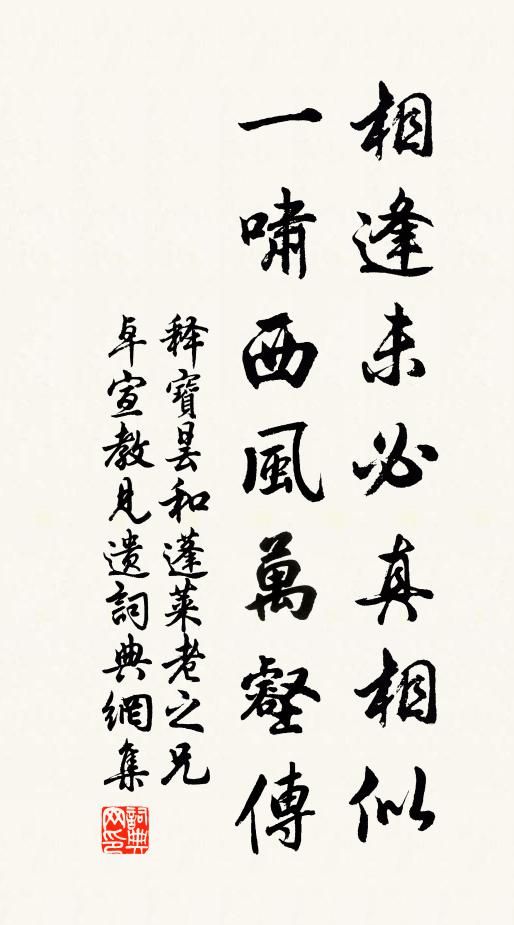 相逢未必真相似
一嘯西風萬壑傳
释寶曇和蓬萊老之兄
卓宣教見遺詞典網集
詞典網印